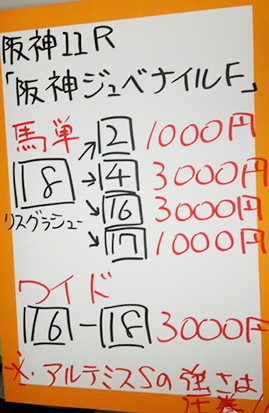 阪神11R
「阪神ジュベナイルF」
馬単
18 → 2 1000円
→ 4 3000円
→ 16 3000円
→ 17 1000円
リスグラシュー
ワイド
16 - 18 3000円
※・アルテミスSの強さは
圧巻!